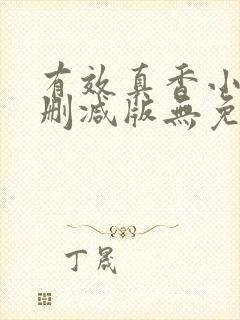 有效真香小
删减版無免
丁晟